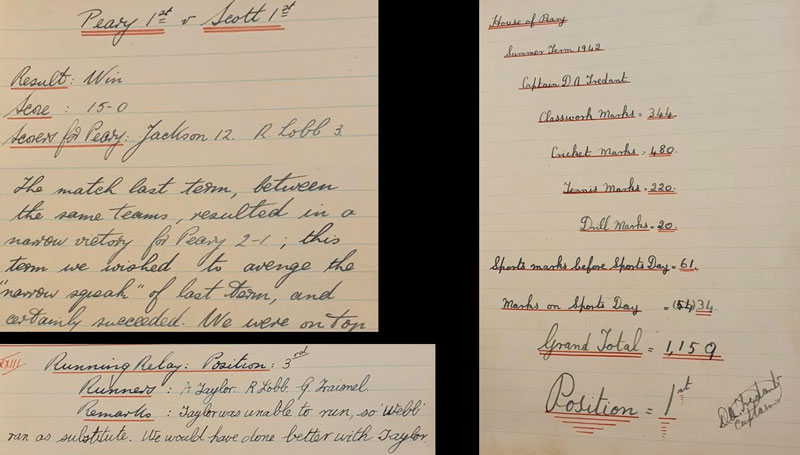 Peary 1st v Scott 1st
Result: Win
Score : 15-0
Scorers for Peary: Jackson 12. R. Lobb 3.
The match last term, between
the same teams, resulted in a
narrow victory for Peary 2-1 ; this
term we wished to avenge the
"narrow squeak" of last term, and
certainly succeeded. We were on top
XXIII Running Relay: Position: 3rd
Runners : A Taylor. R Lobb. G.
Remarks : Taylor was unable to run, so Webb
ran as substitute. We would have done better with Taylor
House of Peary
Summer Term 1942
Captain D A Tredant
Classwork Marks = 344
Cricket Marks = 480.
Tennis Marks = 220.
Drill Marks = 20.
Sports marks before Sports Day = 61.
Marks on Sports Day = (54) 34.
Grand Total = 1,159
Position = 1st
DA Tredant
Captain